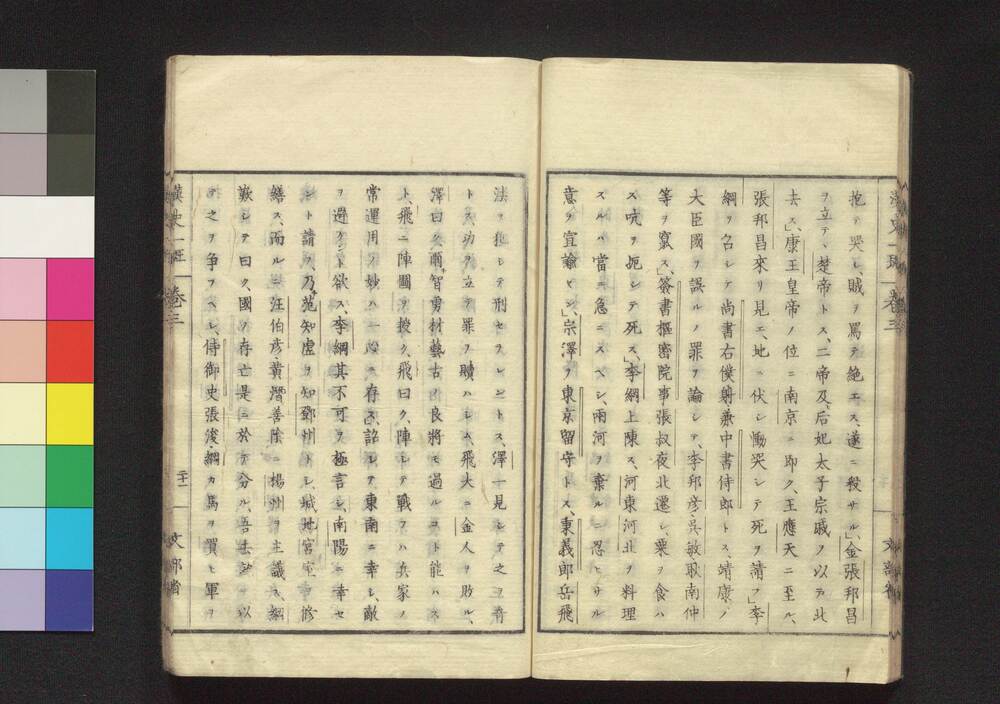 抱テ哭シ、賊ヲ罵テ絶エス、遂ニ殺サル、金張邦昌
ヲ立テ、楚帝トス、二帝及后妃太子宗戚ノ以テ北
去ス、康王皇帝ノ位ニ南京ニ即ク、王應天ニ至ル、
張邦昌來リ見エ、地ニ伏シ慟哭シテ死ヲ請フ、李
綱ヲ召シテ尚書右僕射兼中書侍郎トス、靖康ノ
大臣國ヲ誤ルノ罪ヲ論シテ、李邦彦、吳敏、耿南仲
等ヲ竄ス、簽書樞密院事張叔夜北遷シ、粟ヲ食ハ
ス、吭ヲ扼シテ死ス、李綱上陳ス、河東河北ヲ料理
スルハ當ニ急ニスベシ、兩河ヲ棄ルニ忍ヒサル
意ヲ宣諭セシ、宗澤ヲ東京留守トス、秉義郎岳飛
法ヲ犯シテ刑セラレントス、澤一見シテ之ヲ奇
トス、功ヲ立テ罪ヲ贖ハシム、飛大ニ金人ヲ敗ル、
澤曰ク、爾智勇材藝古ノ良將モ過ルコト能ハス
ト、飛ニ陣圖ヲ授ク、飛曰ク、陣シテ戰フハ兵家ノ
常、運用ノ妙ハ一心ニ存ス、詔シテ東南ニ幸シ、敵
ヲ避ケント欲ス、李綱其不可ヲ極言シ、南陽ニ幸セ
ント請フ、乃范知虛ヲ知鄧州トシ、城地宮室ヲ修
繕ス、而ルニ汪伯彦、黄潛善陰ニ揚州ヲ主議ス、綱
歎シテ曰ク、國ノ存亡是ニ於テ分ル、吾去就ヲ以
テ之ヲ爭フヘシ、侍御史張浚、綱カ馬ヲ買ヒ軍ヲ
漢史一班
卷三
二十一
文部省